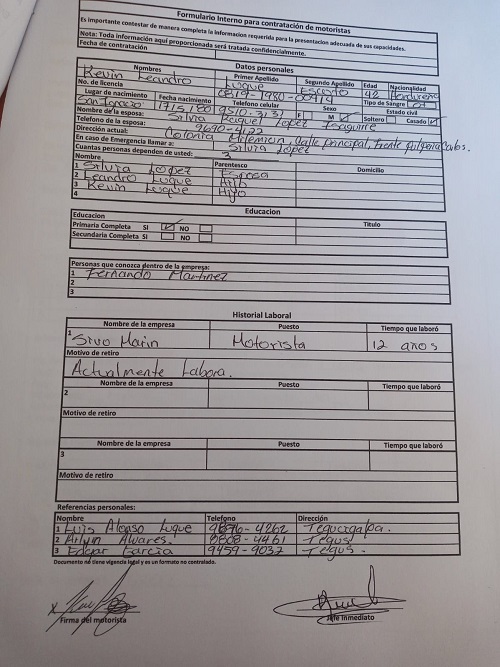 Formulario Interno para contratación de motoristas
Es importante contestar de manera completa la informacion requerida para la presentacion adecuada de sus capacidades.
Nota: Toda información aqui proporcionada será tratada confidencialmente.
Fecha de contratación
Datos personales
Nombres Primer Apellido Segundo Apellido Edad Nacionalidad
Kevin Leandro Luque Escoto 42 Hondureña
No. de licencia 1980-00414 Tipo de Sangre
Lugar de nacimiento Fecha nacimiento Telefono celular Sexo Estado civil
San Ignacio 17/5/80 9510-3131 F M Soltero Casado
Nombre de la esposa: Silvia Raquel Lopez Izaguirre
Telefono de la esposa: 9690-4122
Dirección actual: Colonia calle principal, frente
En caso de Emergencia llamar a: Silvia Lopez
Cuantas personas dependen de usted: 3
Nombre Parentesco Domicilio
1 Silvia Lopez Esposa
2 Leandro Luque Hijo
3 Kevin Luque Hijo
4
Educacion
Educacion Titulo
Primaria Completa SI NO
Secundaria Completa SI NO
Personas que conozca dentro de la empresa:
1 Fernando Martinez
2
3
Historial Laboral
Nombre de la empresa Puesto Tiempo que laboró
1 Marin Motorista 12 años
Motivo de retiro
Actualmente Labora.
Nombre de la empresa Puesto Tiempo que laboró
2
Motivo de retiro
Nombre de la empresa Puesto Tiempo que laboró
3
Motivo de retiro
Referencias personales:
Nombre Telefono Dirección
1 Luis Alonso Luque 9876-4262 Tegucigalpa.
2 Alvares. 8808-4461 Tegus.
3 Edgar Garcia 9459-9037 Tegus.
Documento no tiene vigencia legal y es un formato no controlado.
Firma del motorista Jefe inmediato